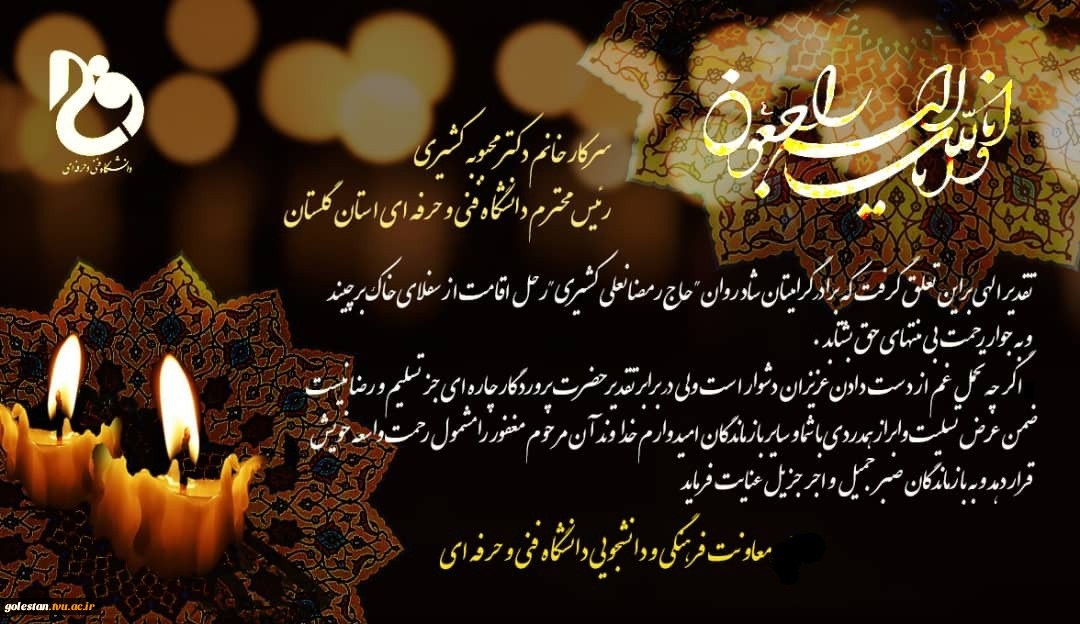 انا لله و انا الیه راجعون
دانشگاه فنی و حرفه ای
سرکار خانم دکتر محبوبه کشیری
رئیس محترم دانشگاه فنی و حرفه ای استان گلستان
تقدیر الهی بر این تعلق گرفت که برادر گرامیتان شادروان "حاج رمضانعلی کشیری" رحل اقامت از سفلای خاک برچیند
و به جوار رحمت بی منتهای حق بشتابد .
اگر چه تحمل غم از دست دادن عزیزان دشوار است ولی در برابر تقدیر حضرت پروردگار چاره ای جز تسلیم و رضا نیست
ضمن عرض تسلیت و ابراز همدردی با شما و سایر بازماندگان امیدوارم خداوند آن مرحوم مغفور را مشمول رحمت واسعه خویش
قرار دهد و به بازماندگان صبر جمیل و اجر جزیل عنایت فرماید
معاونت فرهنگی و دانشجویی دانشگاه فنی و حرفه ای
golestan.tvu.ac.ir